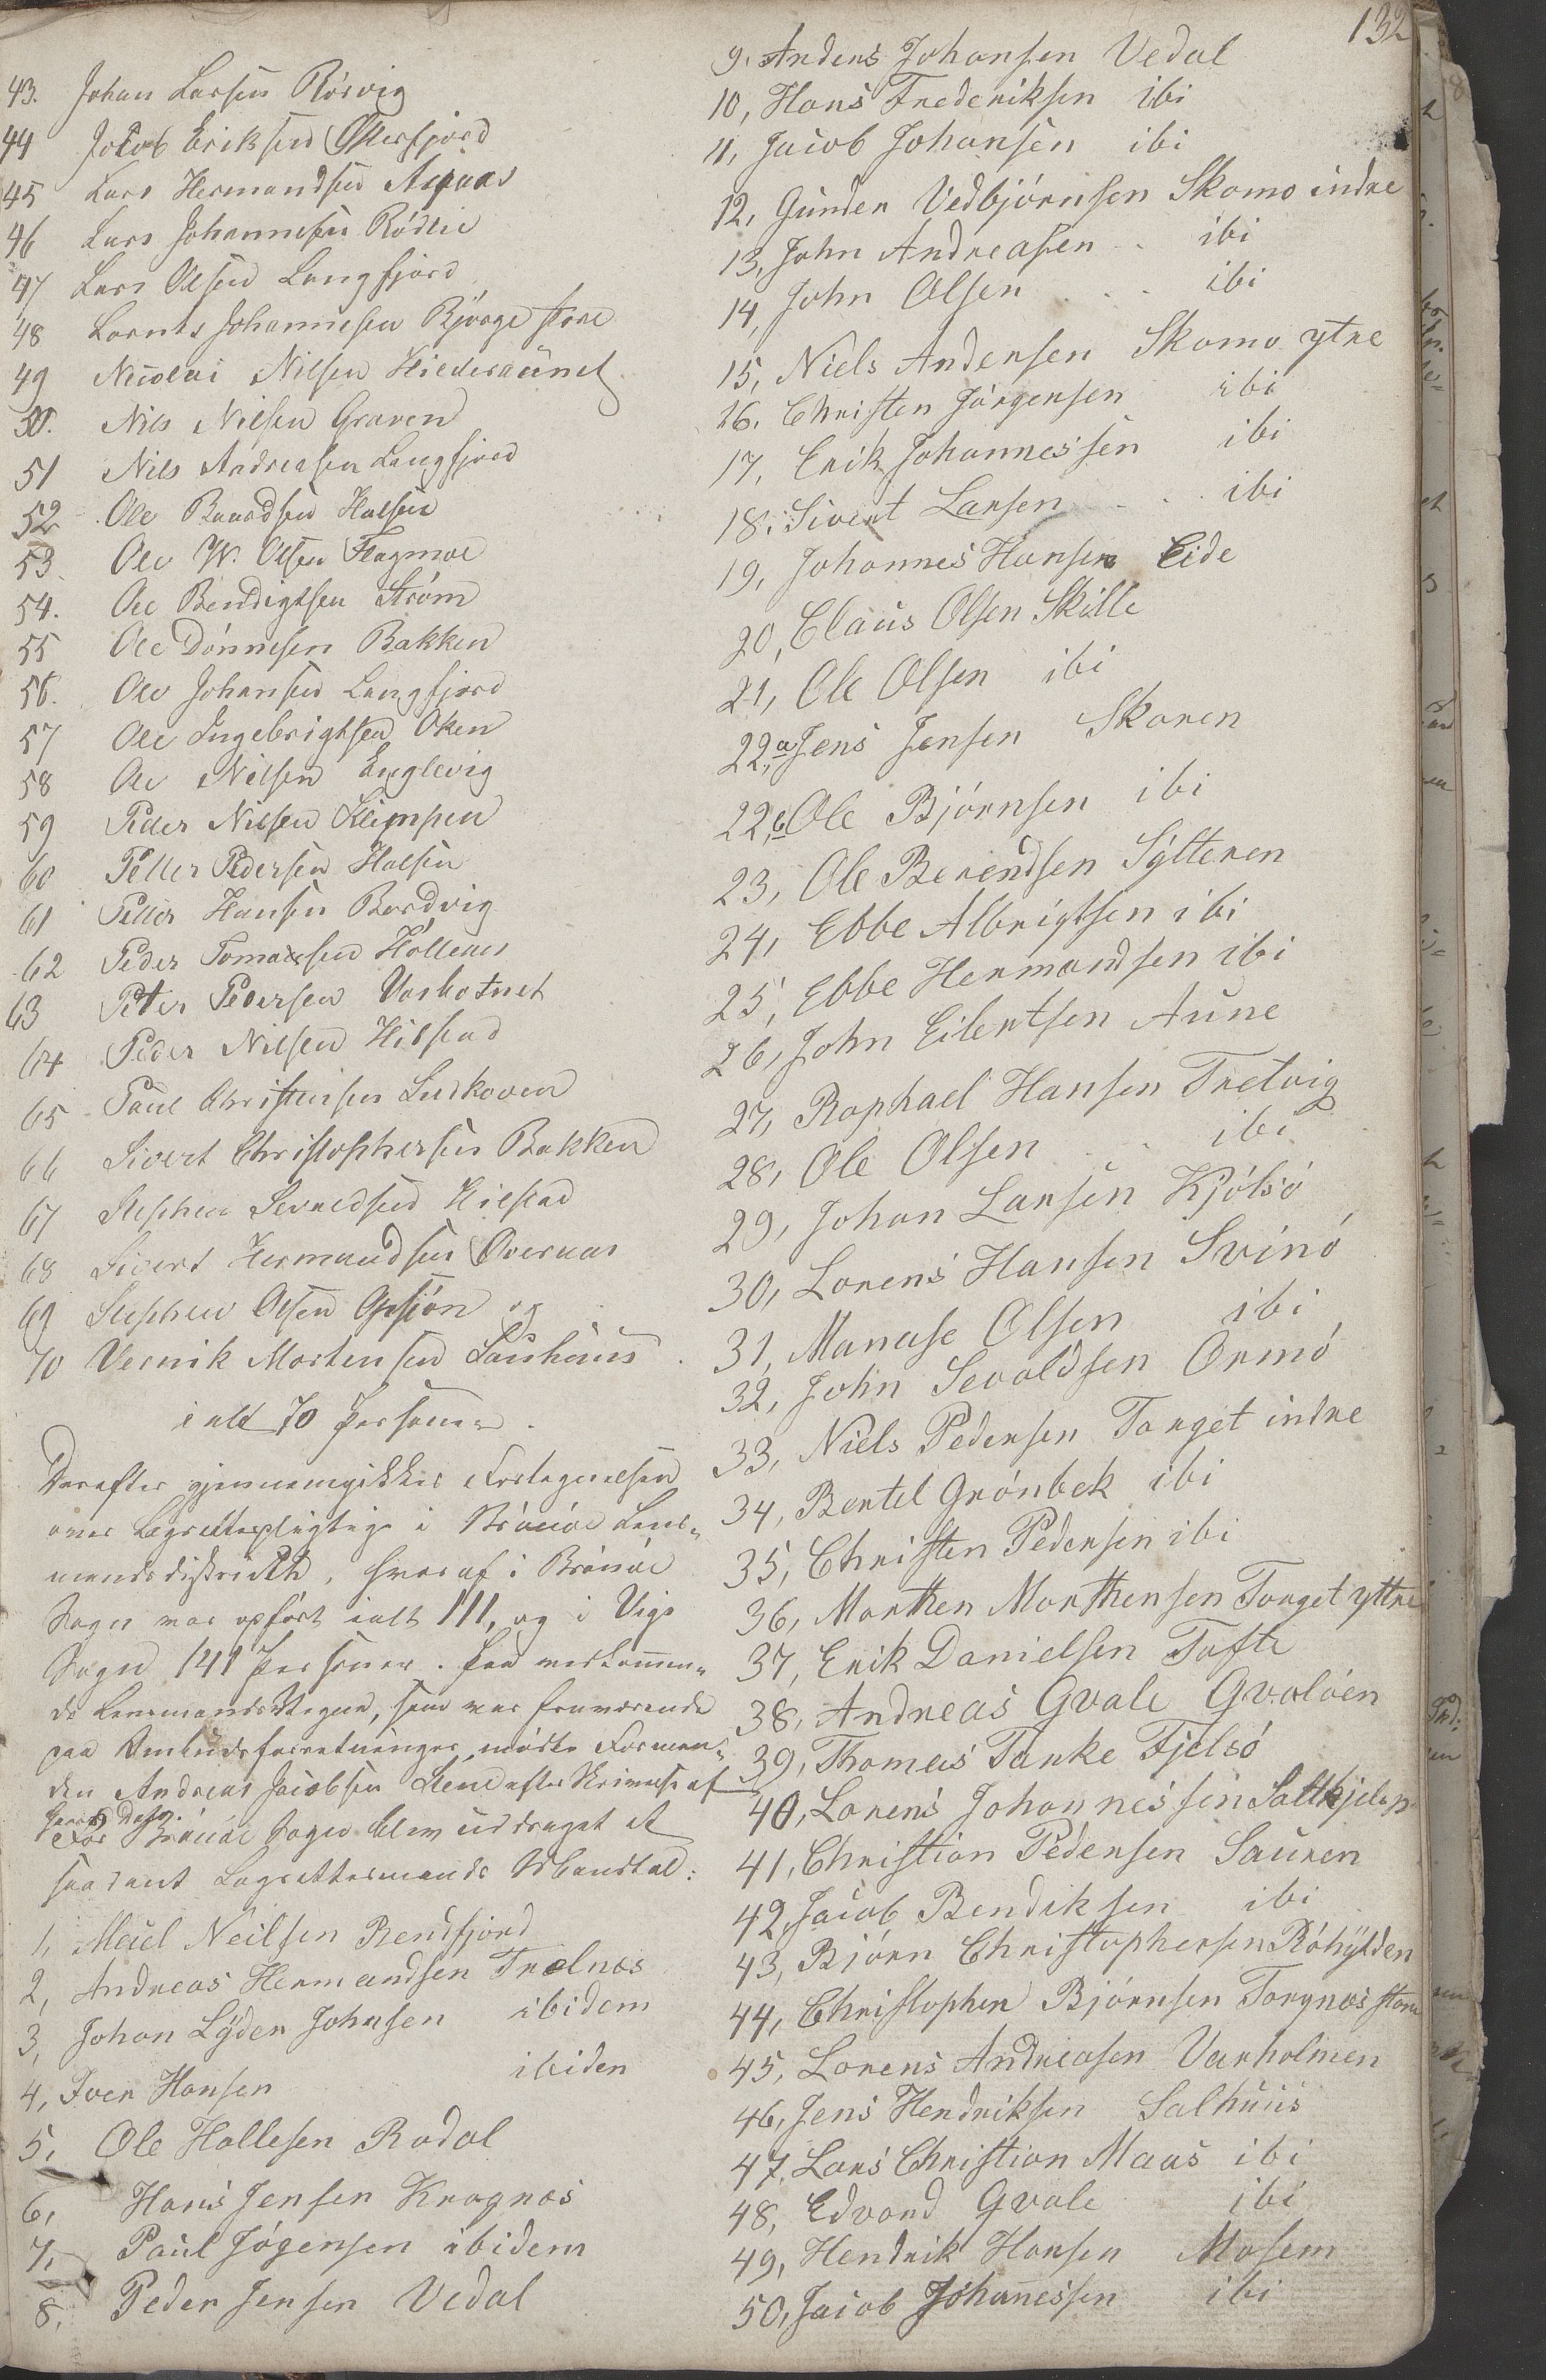 132
43. Johan Larsen Rørvig
44 Jakob Eriksen Ottersfjord
45 Lars Hermandsen Aspaas
46 Lars Johannesen Rödlie
47 Lars Olsen Langfjord
48 Lornts Johannesen Bjørge store
49 Nicolai Nilsen Hiederaunet
50. Nils Nielsen Graven
51 Nils Andreasen Langfjord
52 Ole Baardsen Halsen
53. Ole W. Olsen Flagmoe
54. Ole Bendigtsen Strøm
55 Ole Dónnesen Bakken
56. Ole Johansen Langfjord
57 Ole Ingebrigtsen Oken
58 Ole Nilsen Englevig
59 Peder Nilsen Klimpen
60 Petter Pedersen Halsen
61 Petter Hansen Bordvig
62 Peder Tomassen
63 Peter Pedersen Vasbotnet
64 Peder Nilsen Hilstad
65 Paul Christensen
66 Sivert Christophersen Bakken
67 Stephen Sevaldsen Hilstad
68 Sivert Hermandsen Overnas
69 Stephen Olsen Grsjón og
70 Vernik Mortensen Lauhaus.
i alt 70 Personer.
Derefter gjennemgikkes Fortegnelsen
over Lagrettespligtige i Brönöe Lens-
mandsdistrict, hvoraf i Brönöe
Sogn var opført ialt 111, og i Vigs
Sogn 141 Personer. Paa vedkommen-
de Lensmands Vegne, som var fraværende
paa Embedsforretninger, mødte Forman-
den Andreas Jacobsen efter Skrivelse af
For Brönöe Sogn blev uddraget et
saadant Lagrettesmands Mandtal:
1, Meiel Neilsen Rendfjord
2, Andreas Hermandsen Trælnæs
3, Johan Lÿder Johnsen ibidem
4, Iver Hansen ibiden
5, Ole Hallesen Rodal
6, Hans Jensen Kragnæs
7, Paul Jógensen ibidem
8, Peder Jensen Vedal
9, Anders Johansen Vedal
10, Hans Frederiksen ibi
11, Jacob Johansen ibi
12, Gunder Vedbjórnsen Skomo indre
13, John Andreasen .. ibi
14, John Olsen . . . ibi
15, Niels Andersen Skomo ytre
16, Christen Jórgensen ibi
17, Erik Johannessen ibi
18, Sivert Larsen . . . ibi
19, Johannes Hansen Eide
20, Claus Olsen Skille
21, Ole Olsen ibi
22,a Jens Jensen Skaren
22,b Ole Bjórnsen ibi
23, Ole Berendsen Sylteren
24, Ebbe Albrigtsen ibi
25, Ebbe Hermandsen ibi
26, John Eilertsen Aune
27, Raphael Hansen Tretvig
28, Ole Olsen . . ibi
29, Johan Larsen Kjólsó
30, Lorens Hansen Svinó
31, Manase Olsen ibi
32, John Sevaldsen Ormó
33, Niels Pedersen Torget indre
34, Bertel Grónbek ibi
35, Christen Pedersen ibi
36, Morthen Morthensen Torget yttre
37, Erik Danielsen Tofte
38, Andreas Gvale Gvalóen
39, Thomas Tanke Fjelsó
40, Lorens Johannessen
41, Christian Pedersen Sauren
42, Jacob Bendiksen ibi
43, Bjórn Christophersen Róhÿlden
44, Christopher Bjórnsen Torgnæs store
45, Lorens Andreasen Varholmen
46, Jens Hendriksen Salhuus
47, Lars Christian Maas ibi
48, Edvard Gvale ibi
49, Hendrik Hansen Mosem
50, Jacob Johannessen ibi